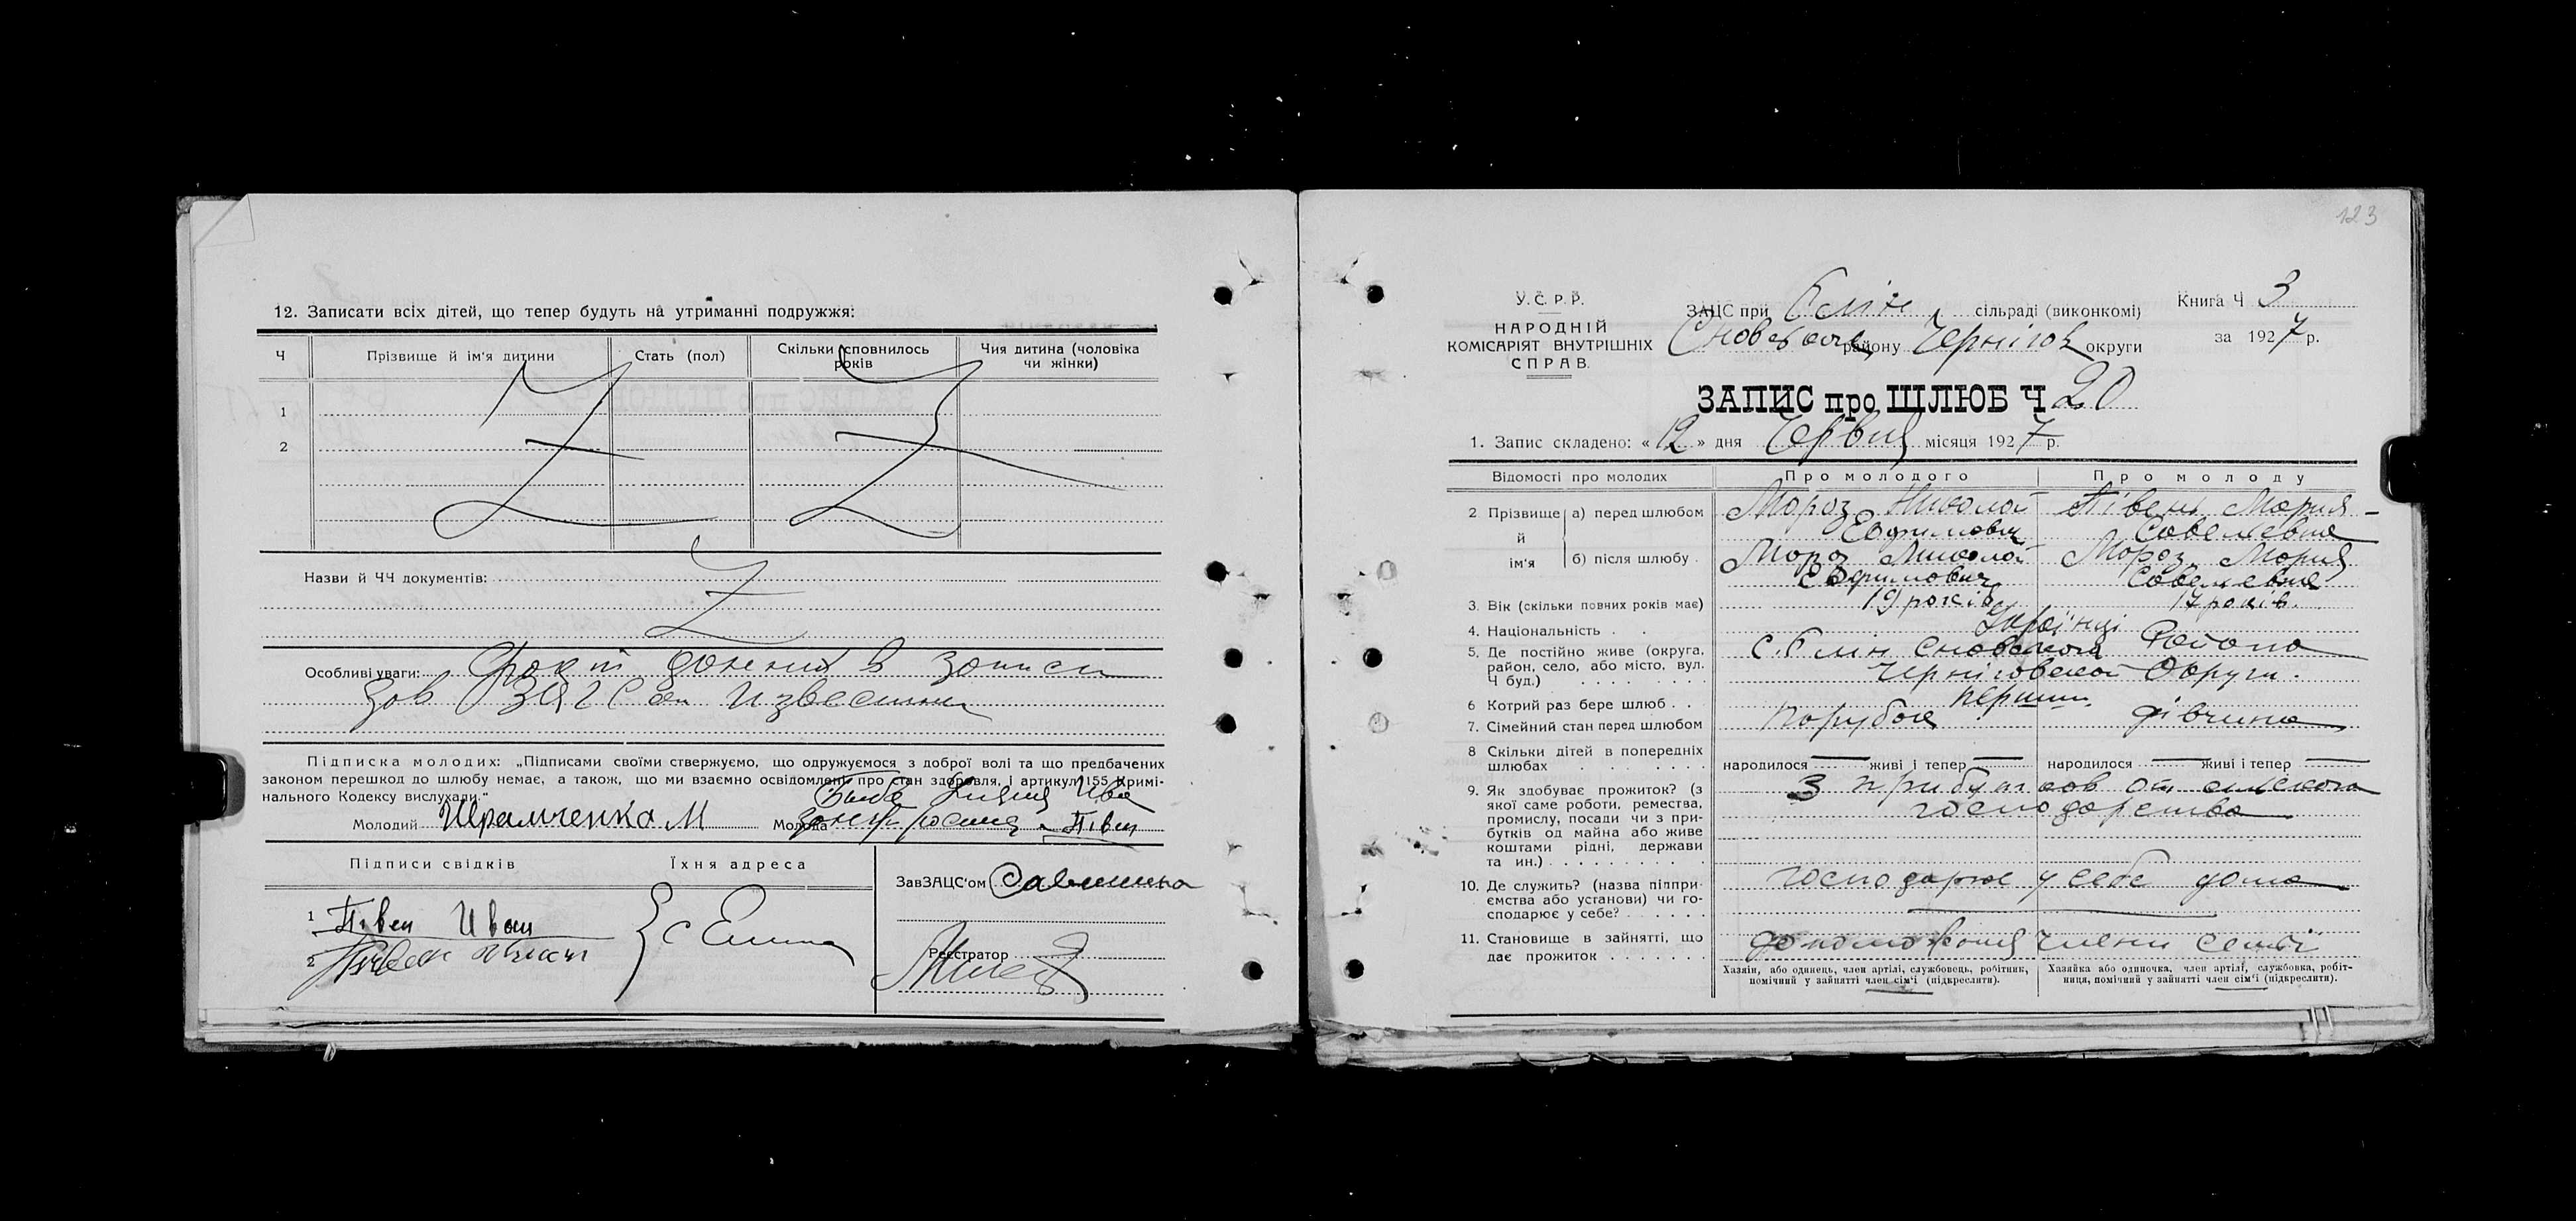 12. Записати всіх дітей, що тепер будуть на утриманні подружжя:
Ч
Прізвище й ім'я дитини
Стать (пол)
Скільки сповнилось років
Чия дитина (чоловіка чи жінки)
1
2
Назви й ЧЧ документів:
Особливі уваги: в записи
Підписка молодих: „Підписами своїми стверджуємо, що одружуємося з доброї волі та що предбачених
законом перешкод до шлюбу немає, а також, що ми взаємно освідомлені про стан здоровля, і артикул 155 Кримі-
нального Кодексу вислухали."
Молодий М
Молода Півен
Підписи свідків
Їхня адреса
ЗавЗАЦС'ом
1 Півен Иван
2
Реєстратор
123
У.С.Р.Р.
НАРОДНІЙ
КОМІСАРІЯТ ВНУТРІШНІХ
СПРАВ.
ЗАЦС при Єлін сільраді (виконкомі)
району Чернігов округи
Книга Ч 3
за 1927 р.
ЗАПИС про ШЛЮБ Ч 20
1. Запис складено: « 12 » дня Червня місяця 1927 р.
Відомості про молодих
Про молодого
Про молоду
2. Прізвище й ім'я
а) перед шлюбом
Мороз Николай
Ефимович
Півень Мария
Савелевна
б) після шлюбу
Мороз Николай
Ефимович
Мороз Мария
Савелевна
3. Вік (скільки повних років має)
19 років
17 років.
4. Національність
Українці
5. Де постійно живе (округа,
район, село, або місто, вул.
Ч буд.)
с. Єлін Сновского Района
Черніговской Округи.
6 Котрий раз бере шлюб
перший
7. Сімейний стан перед шлюбом
Парубок
дівчина
8 Скільки дітей в попередніх
шлюбах
народилося — живі і тепер —
народилося — живі і тепер —
9. Як здобуває прожиток? (з
якої саме роботи, ремества,
промислу, посади чи з при-
бутків од майна або живе
коштами рідні, держави
та ин.)
З прибутков от сельского
господарства
10. Де служить? (назва піппри-
ємства або установи) чи го-
сподарює у себе?
господарює у себе дома
11. Становище в зайнятті, що
дає прожиток
члени семьї
Хазяїн, або одинець, член артілі, службовець, робітник,
помічний у зайнятті член сім'ї (підкреслити).
Хазяйка або одиночка, член артілі, службовка, робіт-
ниця, помічний у зайнятті член сім'ї (підкреслити).